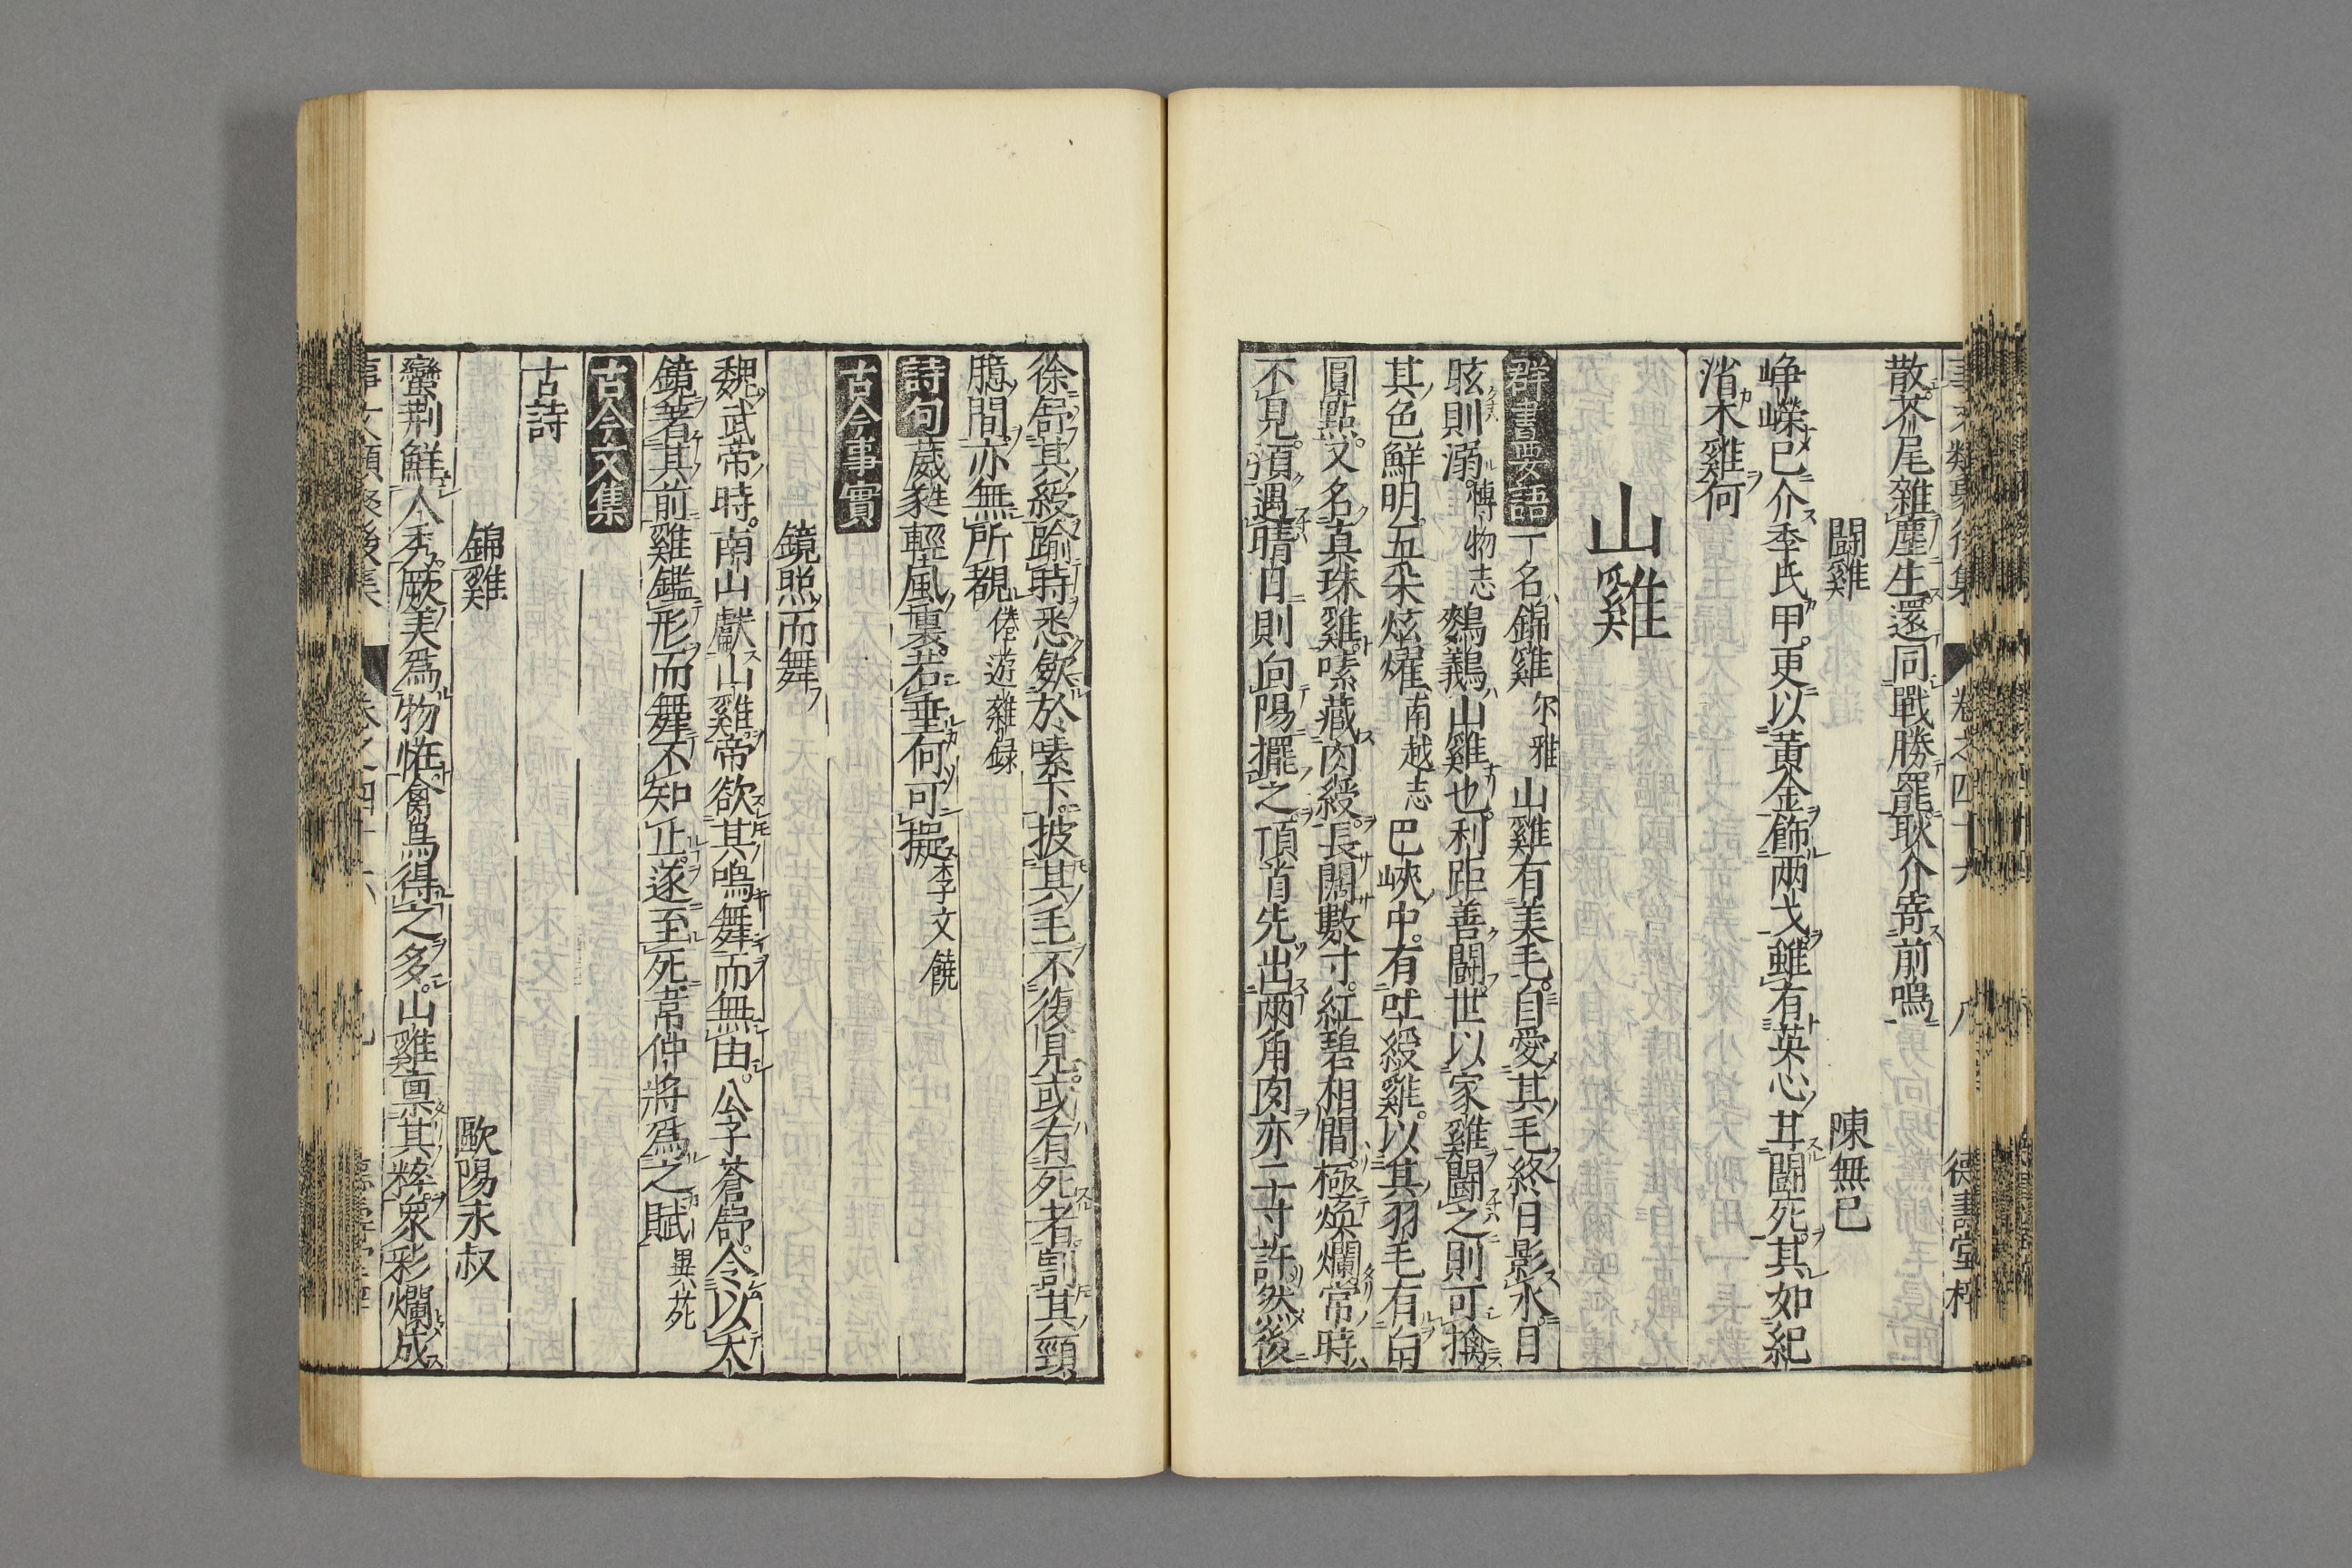 散芥尾雜塵生還同戰勝罷耿介寄前鳴
鬪雞　陳無己
峥嶸已介季氏甲更以黃金飾兩戈雖有英心耳鬪死其如紀
渻木雞何
山雞
群書要語 一名錦雞 尔雅 山雞有美毛自愛其毛終日影水目
眩則溺 博物志 鷩鶀山雞也利距善鬪世以家雞鬪之則可擒
其色鮮明五采炫燿 南越志 巴峽中有吐綬雞以其羽毛有白
圓點又名真珠雞嗉藏肉綬長闊數寸紅碧相間極煥爛常時
不見須遇晴日則向陽擺之頂首先出兩角肉亦二寸許然後
徐舒其綬踰時悉斂於嗉下披其毛不復見或有死者割其頸
臆間亦無所覩 倦遊雜録
詩句 葳蕤輕風裏若垂何可擬 李文饒
古今事實
鏡照而舞
魏武帝時南山獻山雞帝欲其鳴舞而無由公子蒼舒令以大
鏡著其前雞鑑形而舞不知止遂至死韋仲將爲之賦 異苑
古今文集
古詩
錦雞　歐陽永叔
蠻荆鮮人秀厥美爲物怪禽鳥得之多山雞禀其粹衆彩爛成